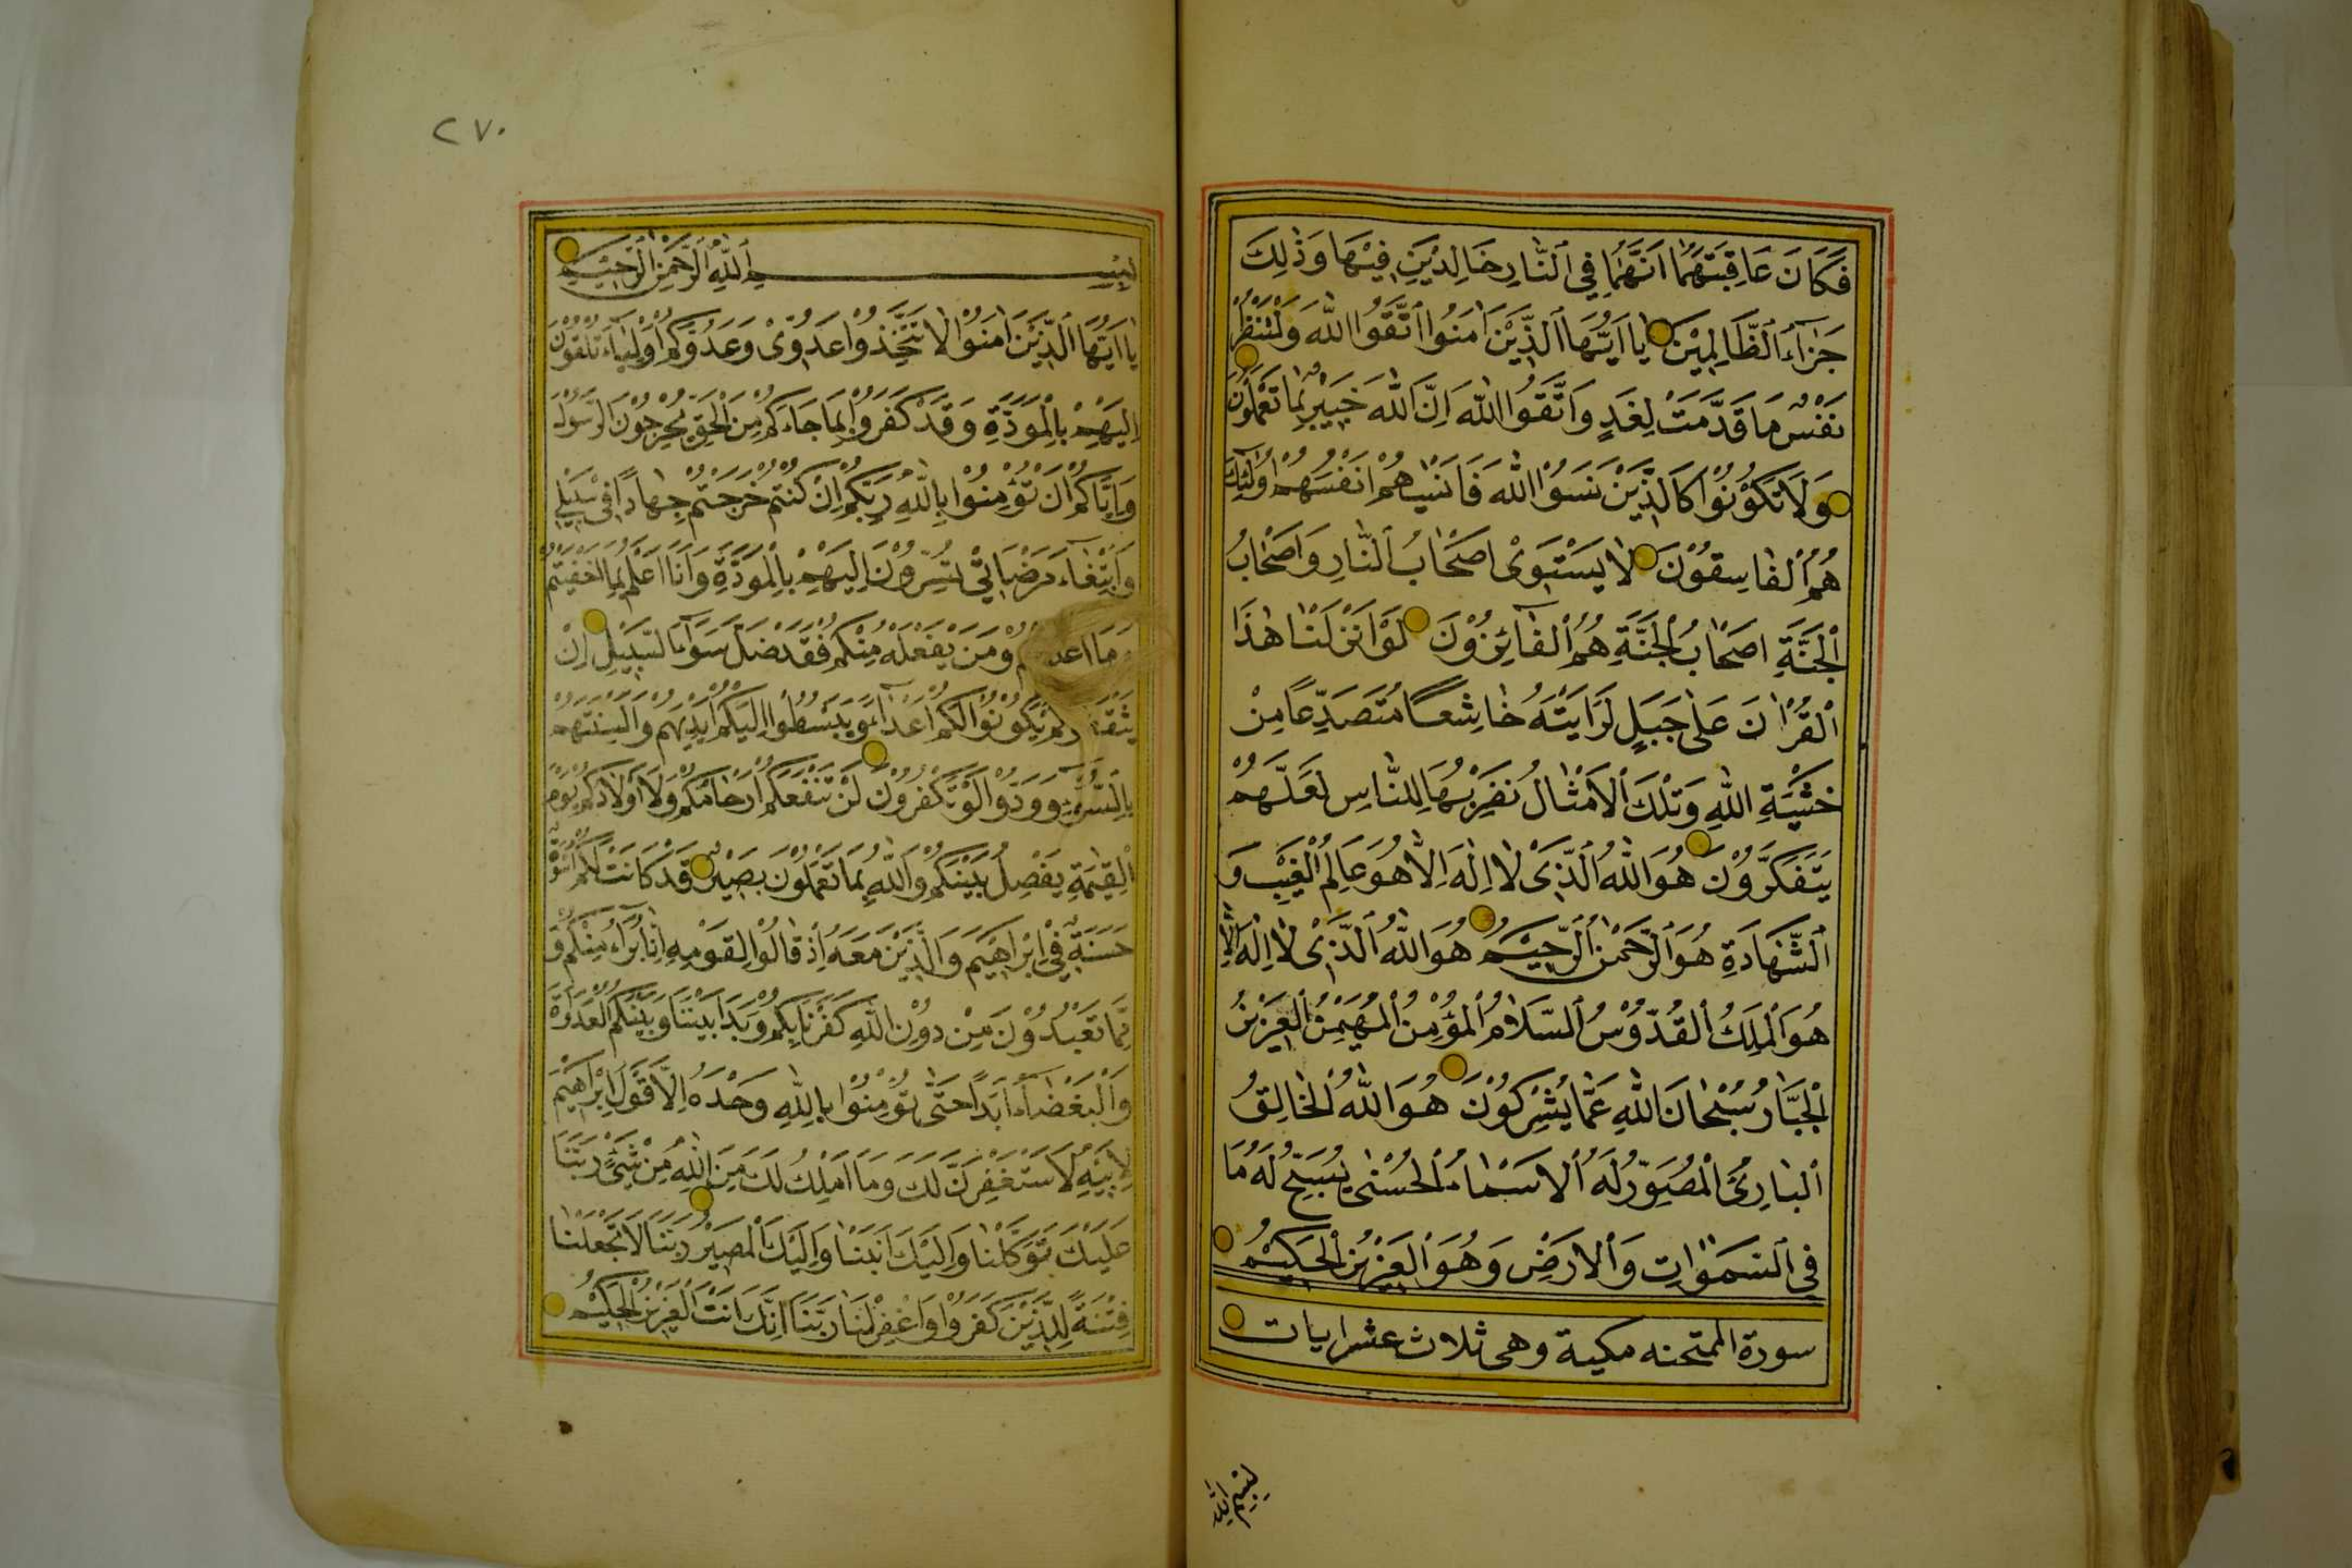 فَكَانَ عَاقِبَتَهُمَا اَنَّهُمَا فِي النَّارِ خَالِدَيْنِ فِيْهَا وَذٰلِكَ
جَزَاءُ الظَّالِمِيْنَ يَا اَيُّهَا الَّذِيْنَ اٰمَنُوا اتَّقُوا اللّٰهَ وَلْتَنْظُرْ
نَفْسٌ مَا قَدَّمَتْ لِغَدٍ وَاتَّقُوا اللّٰهَ اِنَّ اللّٰهَ خَبِيْرٌ بِمَا تَعْمَلُوْنَ
وَلَا تَكُوْنُوْا كَالَّذِيْنَ نَسُوا اللّٰهَ فَاَنْسٰيهُمْ اَنْفُسَهُمْ اُولٰئِكَ
هُمُ الْفَاسِقُوْنَ لَا يَسْتَوِيْ اَصْحَابُ النَّارِ وَاَصْحَابُ
الْجَنَّةِ اَصْحَابُ الْجَنَّةِ هُمُ الْفَائِزُوْنَ لَوْ اَنْزَلْنَا هٰذَا
الْقُرْاٰنَ عَلٰى جَبَلٍ لَرَاَيْتَهُ خَاشِعًا مُتَصَدِّعًا مِنْ
خَشْيَةِ اللّٰهِ وَتِلْكَ الْاَمْثَالُ نَضْرِبُهَا لِلنَّاسِ لَعَلَّهُمْ
يَتَفَكَّرُوْنَ هُوَ اللّٰهُ الَّذِيْ لَا اِلٰهَ اِلَّا هُوَ عَالِمُ الْغَيْبِ وَ
الشَّهَادَةِ هُوَ الرَّحْمٰنُ الرَّحِيْمُ هُوَ اللّٰهُ الَّذِيْ لَا اِلٰهَ اِلَّا
هُوَ الْمَلِكُ الْقُدُّوْسُ السَّلَامُ الْمُؤْمِنُ الْمُهَيْمِنُ الْعَزِيْزُ
الْجَبَّارُ سُبْحَانَ اللّٰهِ عَمَّا يُشْرِكُوْنَ هُوَ اللّٰهُ الْخَالِقُ
الْبَارِئُ الْمُصَوِّرُ لَهُ الْاَسْمَاءُ الْحُسْنٰى يُسَبِّحُ لَهُ مَا
فِي السَّمٰوَاتِ وَالْاَرْضِ وَهُوَ الْعَزِيْزُ الْحَكِيْمُ
سورة الممتحنه مكية وهى ثلاث عشر ايات
بسم الله
٢٧٠
بِسْمِ اللّٰهِ الرَّحْمٰنِ الرَّحِيْمِ
يَا اَيُّهَا الَّذِيْنَ اٰمَنُوْا لَا تَتَّخِذُوْا عَدُوِّيْ وَعَدُوَّكُمْ اَوْلِيَاءَ تُلْقُوْنَ
اِلَيْهِمْ بِالْمَوَدَّةِ وَقَدْ كَفَرُوْا بِمَا جَاءَكُمْ مِنَ الْحَقِّ يُخْرِجُوْنَ الرَّسُوْلَ
وَاِيَّاكُمْ اَنْ تُؤْمِنُوْا بِاللّٰهِ رَبِّكُمْ اِنْ كُنْتُمْ خَرَجْتُمْ جِهَادًا فِيْ سَبِيْلِيْ
وَابْتِغَاءَ مَرْضَاتِيْ تُسِرُّوْنَ اِلَيْهِمْ بِالْمَوَدَّةِ وَاَنَا اَعْلَمُ بِمَا اَخْفَيْتُمْ
وَمَا اَعْلَنْتُمْ وَمَنْ يَفْعَلْهُ مِنْكُمْ فَقَدْ ضَلَّ سَوَاءَ السَّبِيْلِ اِنْ
يَثْقَفُوْكُمْ يَكُوْنُوْا لَكُمْ اَعْدَاءً وَيَبْسُطُوْا اِلَيْكُمْ اَيْدِيَهُمْ وَاَلْسِنَتَهُمْ
بِالسُّوْءِ وَوَدُّوْا لَوْ تَكْفُرُوْنَ لَنْ تَنْفَعَكُمْ اَرْحَامُكُمْ وَلَا اَوْلَادُكُمْ يَوْمَ
الْقِيٰمَةِ يَفْصِلُ بَيْنَكُمْ وَاللّٰهُ بِمَا تَعْمَلُوْنَ بَصِيْرٌ قَدْ كَانَتْ لَكُمْ اُسْوَةٌ
حَسَنَةٌ فِيْ اِبْرَاهِيْمَ وَالَّذِيْنَ مَعَهُ اِذْ قَالُوْا لِقَوْمِهِمْ اِنَّا بُرَءَاءُ مِنْكُمْ وَ
مِمَّا تَعْبُدُوْنَ مِنْ دُوْنِ اللّٰهِ كَفَرْنَا بِكُمْ وَبَدَا بَيْنَنَا وَبَيْنَكُمُ الْعَدَاوَةُ
وَالْبَغْضَاءُ اَبَدًا حَتّٰى تُؤْمِنُوْا بِاللّٰهِ وَحْدَهُ اِلَّا قَوْلَ اِبْرَاهِيْمَ
لِاَبِيْهِ لَاَسْتَغْفِرَنَّ لَكَ وَمَا اَمْلِكُ لَكَ مِنَ اللّٰهِ مِنْ شَيْءٍ رَبَّنَا
عَلَيْكَ تَوَكَّلْنَا وَاِلَيْكَ اَنَبْنَا وَاِلَيْكَ الْمَصِيْرُ رَبَّنَا لَا تَجْعَلْنَا
فِتْنَةً لِلَّذِيْنَ كَفَرُوْا وَاغْفِرْ لَنَا رَبَّنَا اِنَّكَ اَنْتَ الْعَزِيْزُ الْحَكِيْمُ